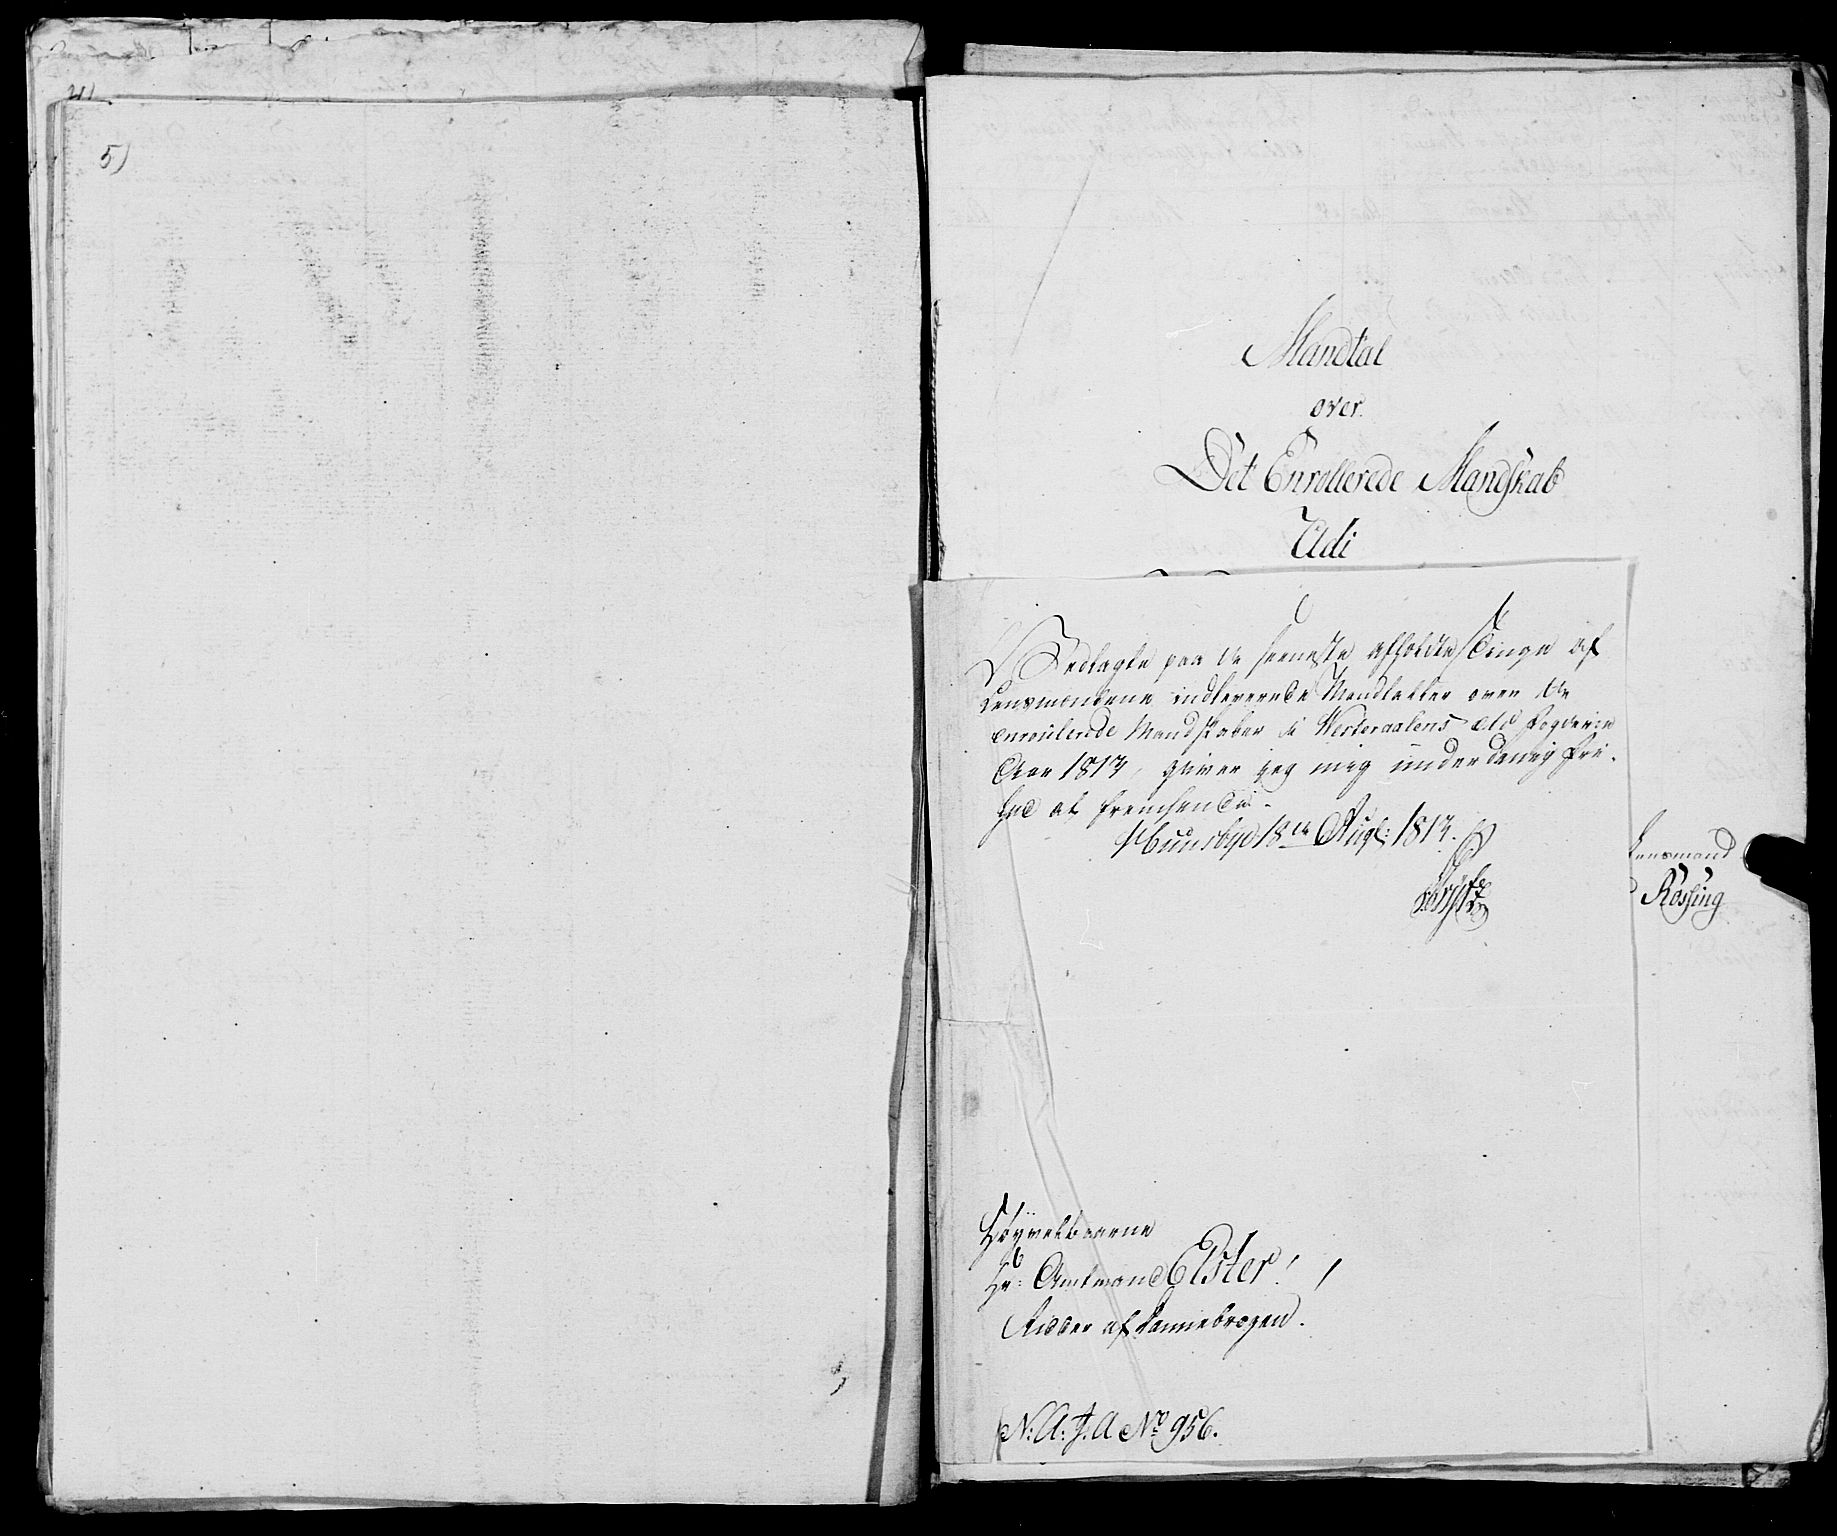 5)
Mandtal
over
Det Enrollerede Mandskab
Udi
Vedlagte paa de seeneste afholdte Tinge af
Lensmændene indleverede Mandtaller over de
enroulerede Mandskaber i Westeraalens Fogderie
Aar 1817, giver jeg mig underdanig Fri-
hed at fremsende.
18de Augt: 1817.
Lensmand
Røssing
Høyvelbaarne
Hr: Amtmand Elster!
Ridder af Dannebrogen.
N: A: J. A No 956.